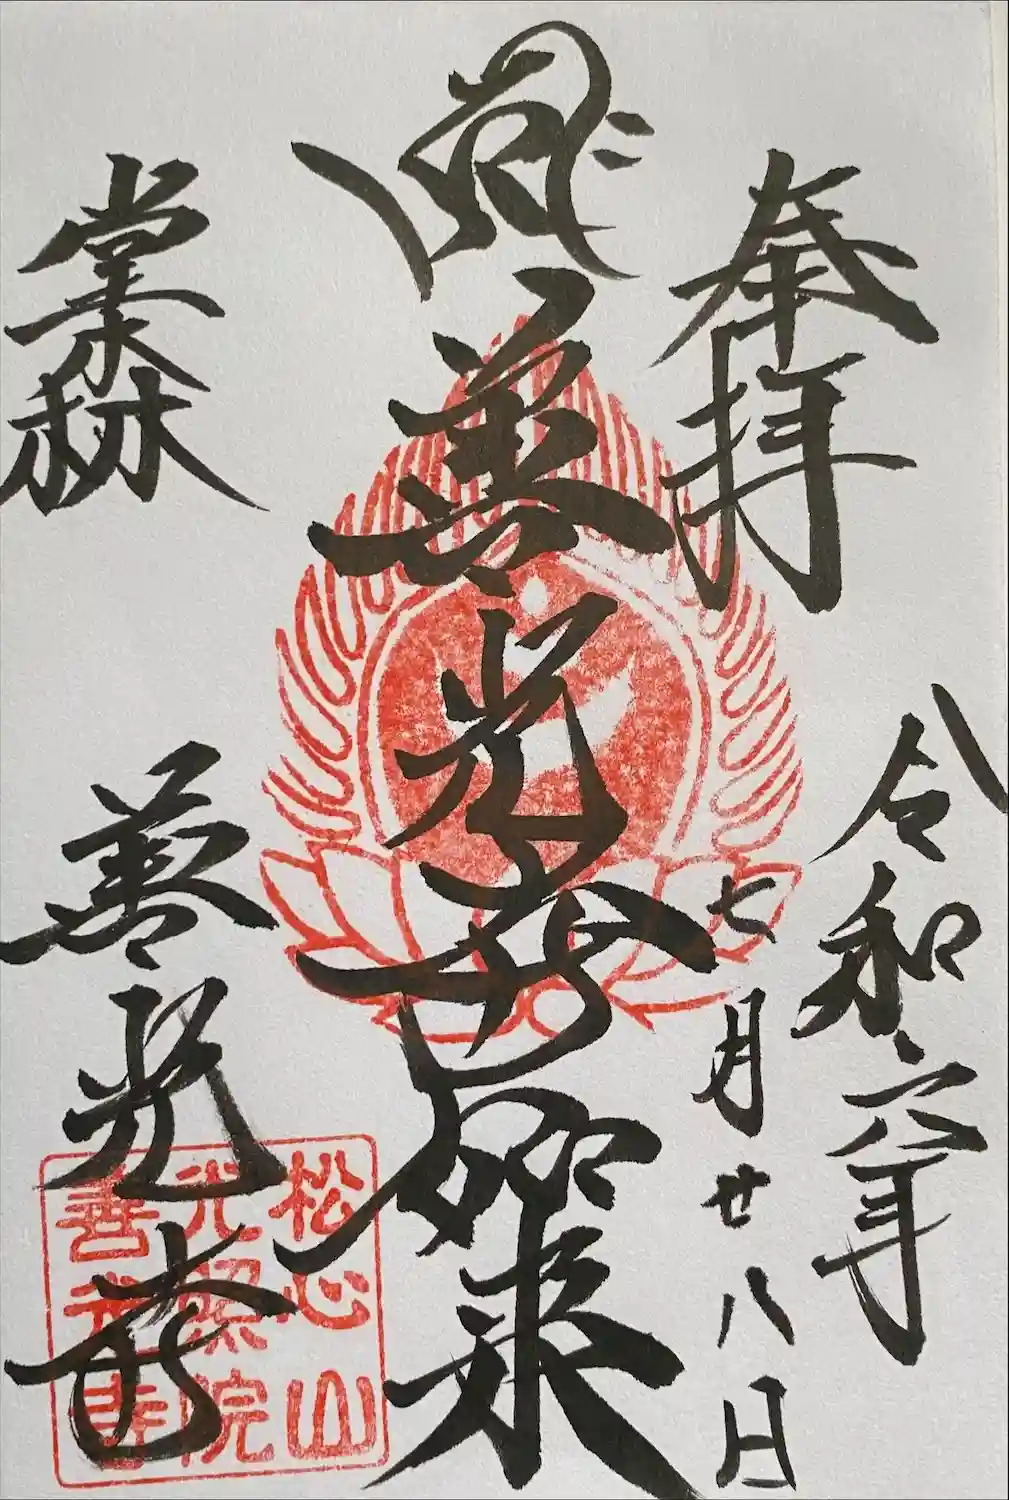 奉拝
令和六年
七月廿八日
善光寺如来
堂森
善光寺
松心山
光照院
善光寺